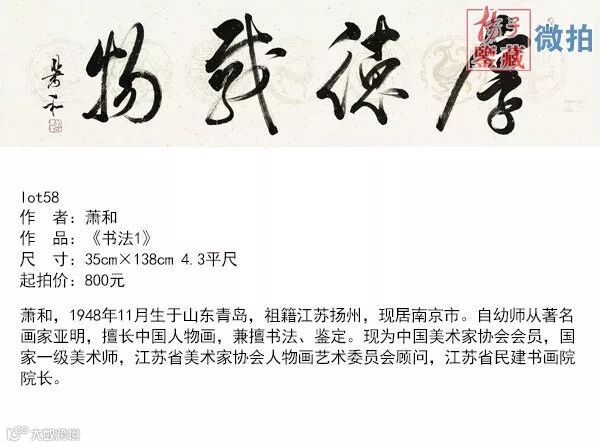 厚德载物
萧和
扬子
鉴藏
微拍
lot58
作 者：萧和
作 品：《书法1》
尺 寸：35cm×138cm 4.3平尺
起拍价：800元
萧和，1948年11月生于山东青岛，祖籍江苏扬州，现居南京市。自幼师从著名
画家亚明，擅长中国人物画，兼擅书法、鉴定。现为中国美术家协会会员，国
家一级美术师，江苏省美术家协会人物画艺术委员会顾问，江苏省民建书画院
院长。
大数跨境